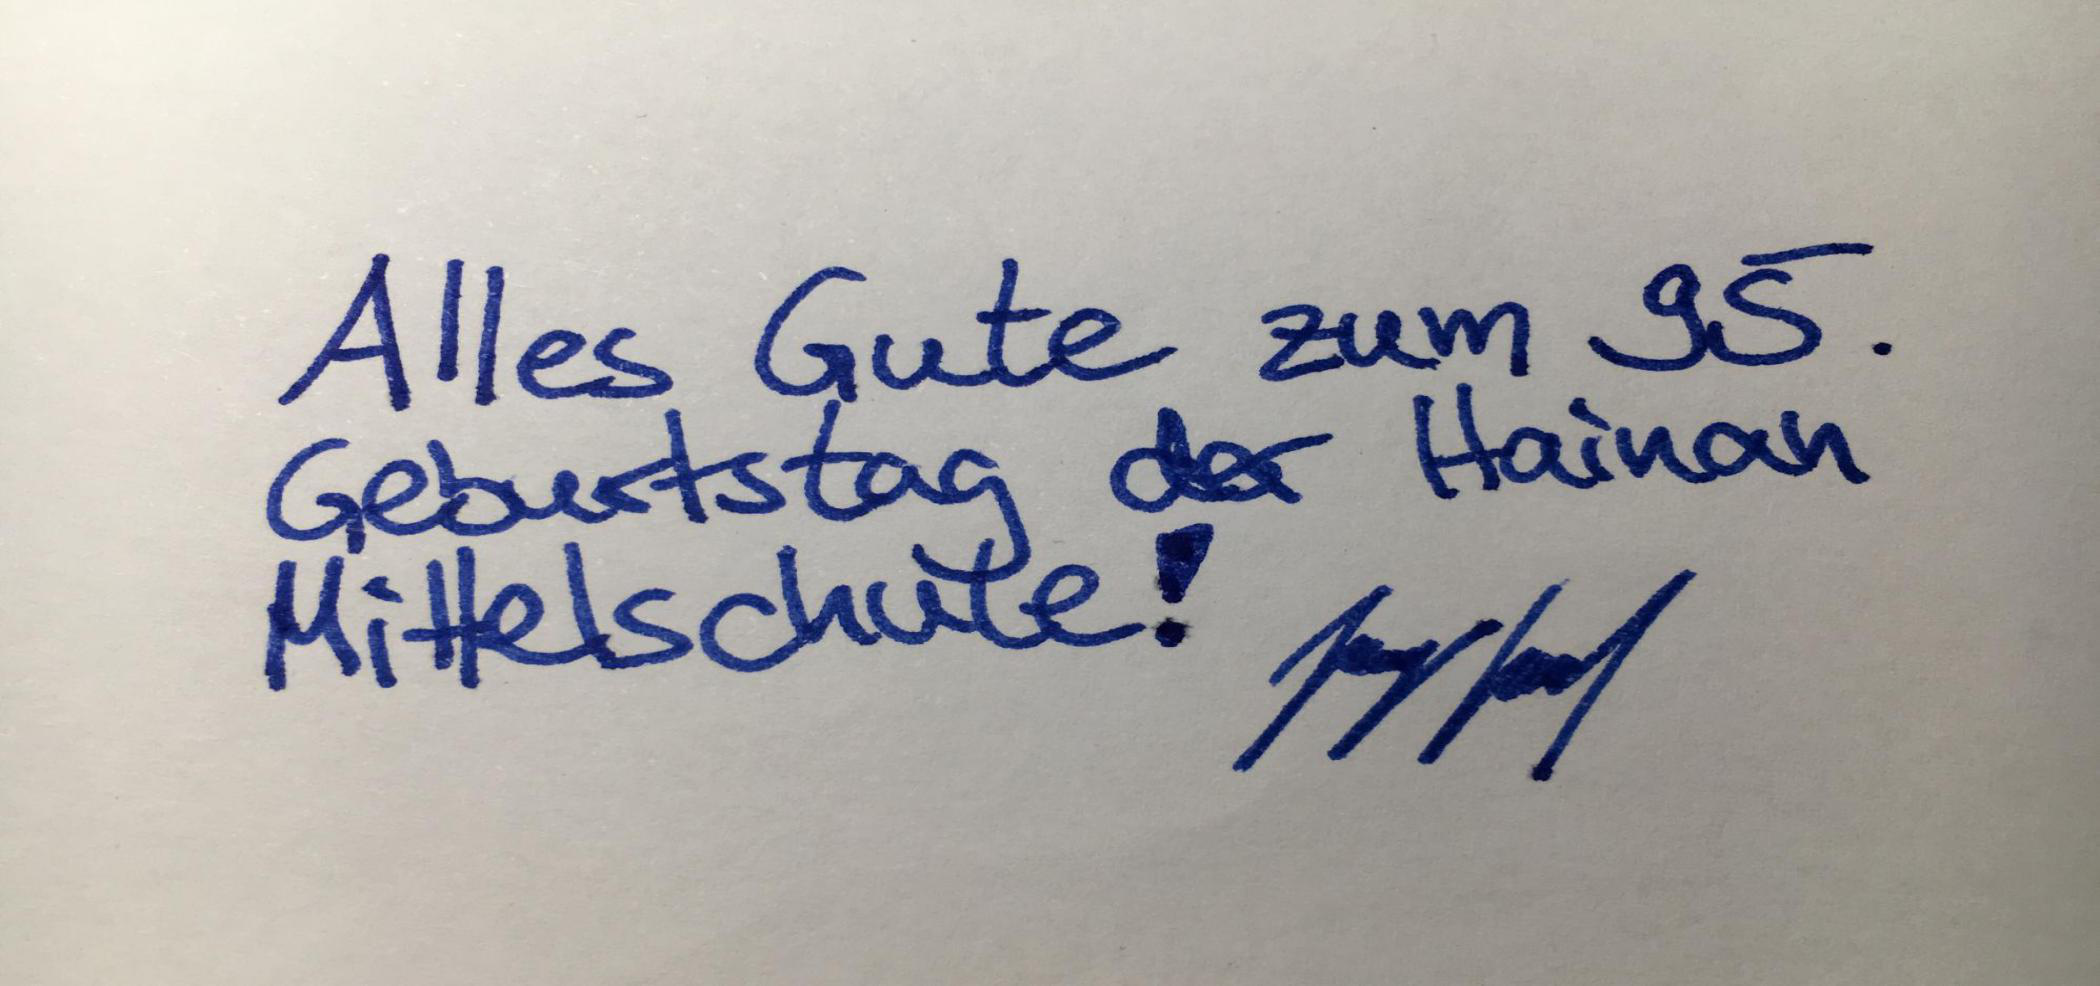 Alles Gute zum 95.
Geburtstag der Hainan
Mittelschule!